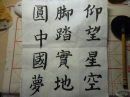 仰望星空
脚踏實地
圓中國夢